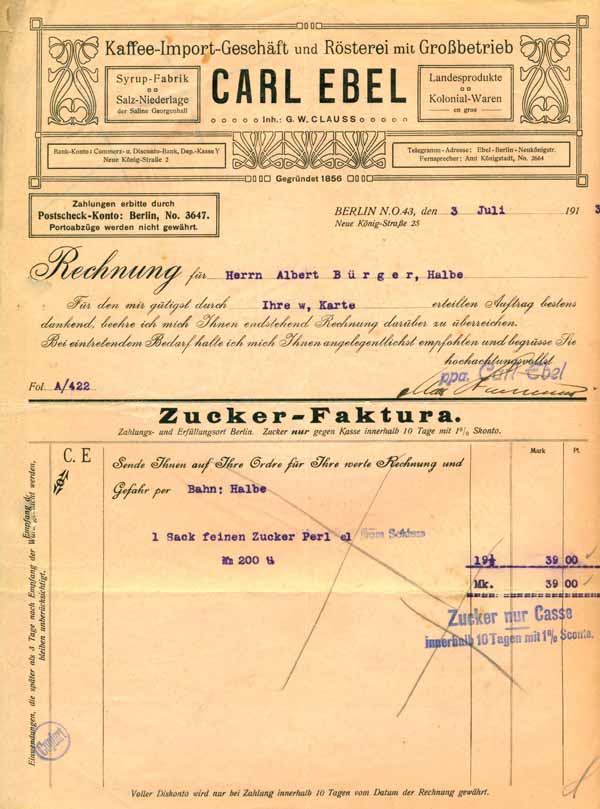 Kaffee-Import-Geschäft und Rösterei mit Großbetrieb
Syrup-Fabrik
Salz-Niederlage
der Saline Georgenhall
CARL EBEL
Inh.: G. W. CLAUSS
Landesprodukte
Kolonial-Waren
en gros
Bank-Konto: Commerz- u. Disconto-Bank, Dep.-Kasse Y
Neue König-Straße 2
Telegramm-Adresse: Ebel-Berlin-Neukönigstr.
Fernsprecher: Amt Königstadt, No. 2664
Gegründet 1856
Zahlungen erbitte durch
Postscheck-Konto: Berlin, No. 3647.
Portoabzüge werden nicht gewährt.
BERLIN N.O. 43, den 3 Juli 191 3
Neue König-Straße 25
Rechnung für Herrn Albert Bürger, Halbe
Für den mir gütigst durch Ihre w, Karte erteilten Auftrag bestens
dankend, beehre ich mich Ihnen endstehend Rechnung darüber zu überreichen.
Bei eintretendem Bedarf halte ich mich Ihnen angelegentlichst empfohlen und begrüsse Sie
hochachtungsvollst
ppa. Carl Ebel
Fol. A/422
Zucker-Faktura.
Zahlungs- und Erfüllungsort Berlin. Zucker nur gegen Kasse innerhalb 10 Tage mit 1% Skonto.
Mark Pf.
C. E
Sende Ihnen auf Ihre Ordre für Ihre werte Rechnung und
Gefahr per Bahn: Halbe
1 Sack feinen Zucker Perl
200 ℔ 19½ 39 00
Mk. 39 00
Zucker nur Casse
innerhalb 10 Tagen mit 1% Sconto.
Einwendungen, die später als 3 Tage nach Empfang der Ware gemacht werden,
bleiben unberücksichtigt.
Voller Diskonto wird nur bei Zahlung innerhalb 10 Tagen vom Datum der Rechnung gewährt.